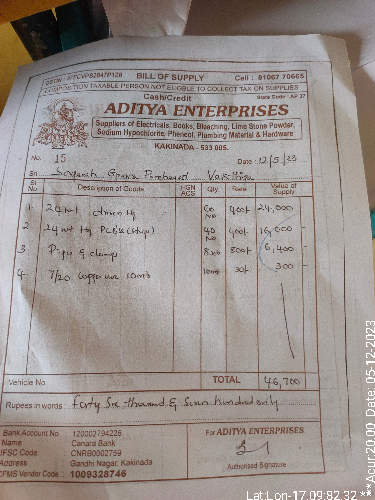 GSTIN : 37ECVPS2847P1Z8 BILL OF SUPPLY Cell : 81067 70665
COMPOSITION TAXABLE PERSON NOT ELIGIBLE TO COLLECT TAX ON SUPPLIES
Cash/Credit State Code : AP 37
ADITYA ENTERPRISES
Suppliers of Electricals, Books, Bleaching, Lime Stone Powder,
Sodium Hypochlorite, Pheneol, Plumbing Material & Hardware
KAKINADA - 533 005.
No. 15 Date : 12/5/23
Sri
Sl No Description of Goods HSN ACS Qty Rate Value of Supply
1 24 wt 60 No 400/- 24,000
2 24 wt 40 No 400/- 16,000
3 Pipes & clamps 800/- 6,400
4 7/20 Copper wire 10mts 10mts 30/- 300
Vehicle No. TOTAL 46,700
Rupees in words : Forty Six thousand & Seven hundred only
Bank Account No. 120002794226 For ADITYA ENTERPRISES
Name Canara Bank
IFSC Code CNRB0002759
Address Gandhi Nagar, Kakinada Authorised Signature
CFMS Vendor Code 1009328746
Lat:Lon-17.09:82.32 ***Acur:20.00, Date: 05-12-2023